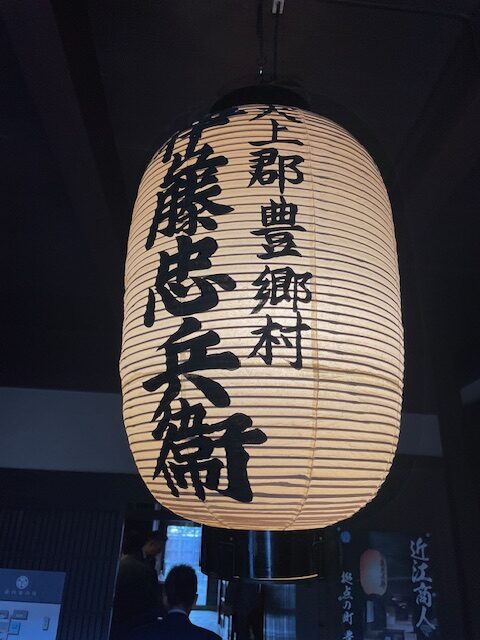 犬上郡豊郷村
伊藤忠兵衛
近江商人
拠点の町